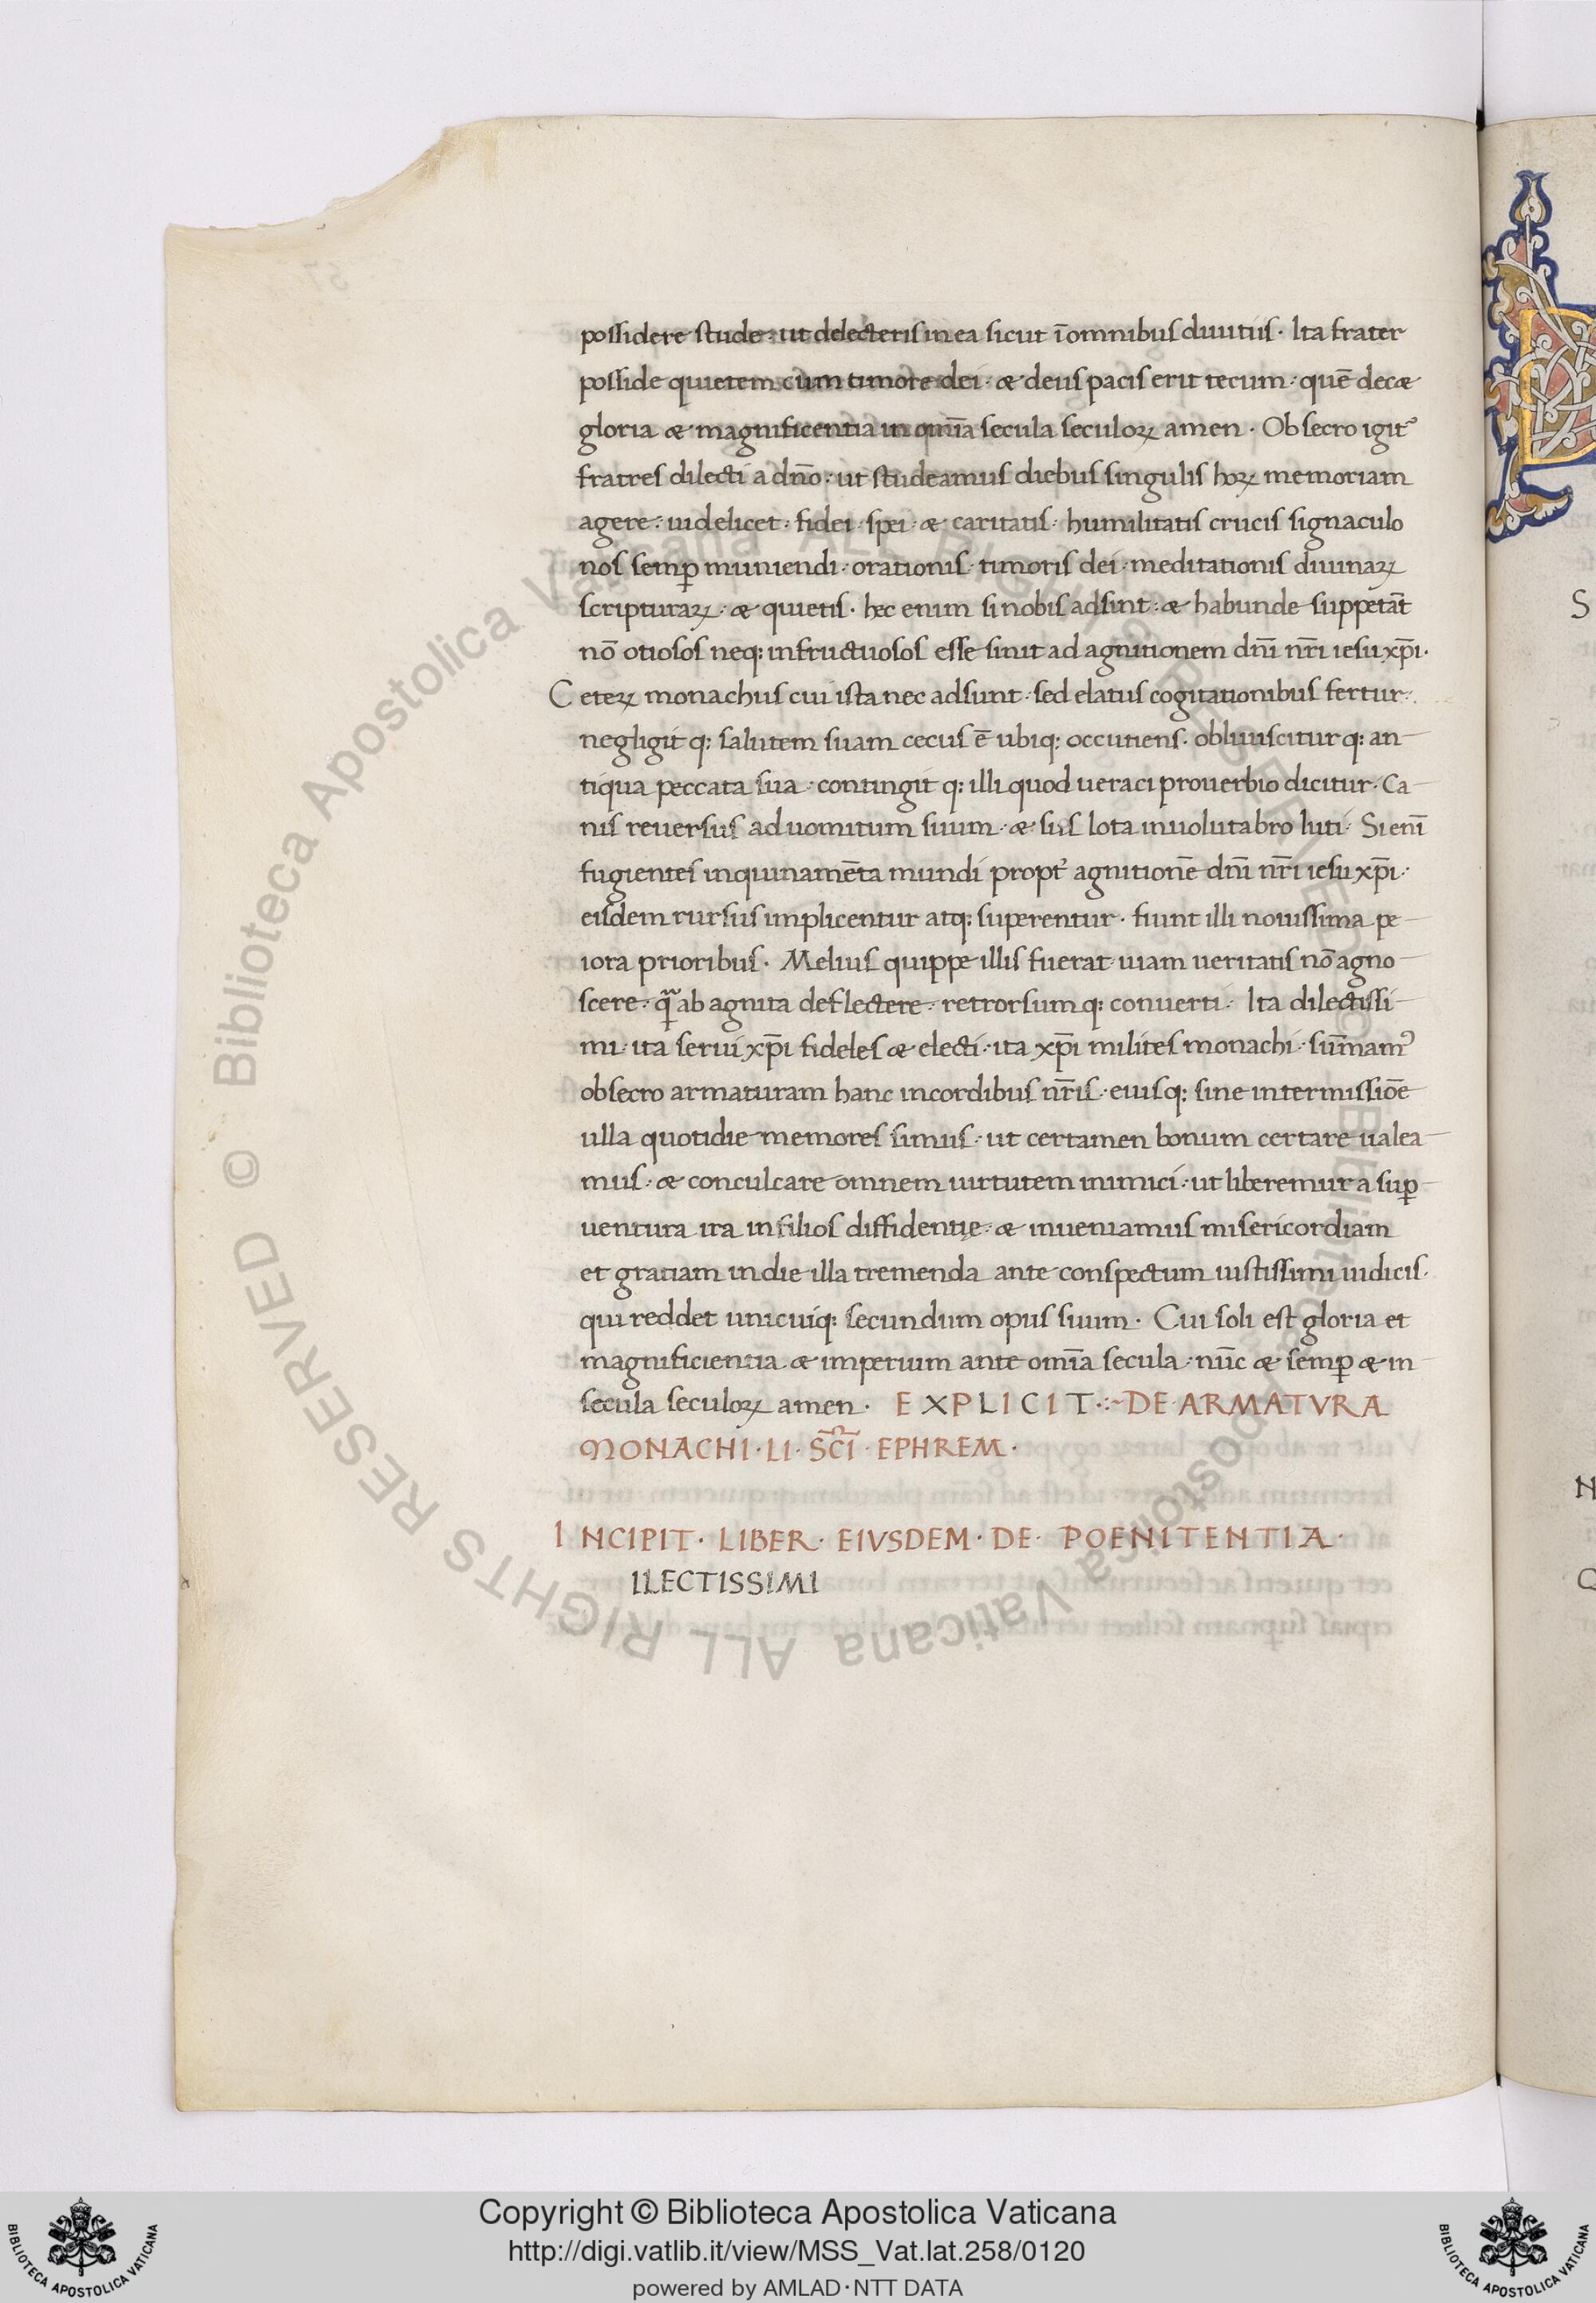 possidere stude· ut delecteris in ea sicut ī omnibus diuitiis· Ita frater
posside quietem cum timore dei· & deus pacis erit tecum· quē decæ
gloria & magnificentia in om̄ia secula seculoꝝ amen· Obsecro igit᷒
fratres dilecti a dn̄o· ut studeamus diebus singulis hoꝝ memoriam
agere· uidelicet· fidei· spei· & caritatis· humilitatis crucis signaculo
nos semꝑ muniendi· orationis· timoris dei· meditationis diuinaꝝ
scripturaꝝ· & quietis· hec enim si nobis adsint· & habunde suppetāt
nō otiosos neq; infructuosos esse sinit ad agnitionem dn̄i nr̄i iesu xp̄i·
Ceteꝝ monachus cui ista nec adsunt· sed elatus cogitationibus fertur·
negligit q; salutem suam cecus ē ubiq; occutiens· obliuiscitur q; an-
tiqua peccata sua· contingit q; illi quod ueraci prouerbio dicitur· Ca-
nis reuersus ad uomitum suum· & sus lota in uolutabro luti· Si eni̅
fugientes inquinamēta mundi propt̉ agnitionē dn̄i nr̄i iesu xp̄i·
eisdem rursus implicentur atq; superentur· fiunt illi nouissima pe-
iora prioribus· Melius quippe illis fuerat uiam ueritatis nō agno-
scere· qͣ̄ ab agnita deflectere· retrorsum q; conuerti· Ita dilectissi-
mi· ita serui xp̄i fideles & electi· ita xp̄i milites monachi· sum̄am᷒
obsecro armaturam hanc in cordibus nr̄is· eiusq; sine intermissiōe
ulla quotidie memores simus· ut certamen bonum certare ualea-
mus· & conculcare omnem uirtutem inimici· ut liberemur a suꝑ-
uentura ira in filios diffidentię· & inueniamus misericordiam
et gratiam in die illa tremenda ante conspectum iustissimi iudicis·
qui reddet unicuiq; secundum opus suum· Cui soli est gloria et
magnificientia & imperium ante om̄ia secula· nūc & semꝑ & in
secula seculoꝝ amen· EXPLICIT·:~DE ARMATVRA
MONACHI·LI·SC̄I·EPHREM·
INCIPIT·LIBER·EIVSDEM·DE·POENITENTIA·
ILECTISSIMI
S
N
© Biblioteca Apostolica Vaticana ALL RIGHTS RESERVED © Biblioteca Apostolica Vaticana ALL RIGHTS RESERVED
Copyright © Biblioteca Apostolica Vaticana
http://digi.vatlib.it/view/MSS_Vat.lat.258/0120
powered by AMLAD·NTT DATA
BIBLIOTECA APOSTOLICA VATICANA
BIBLIOTECA APOSTOLICA VATICANA